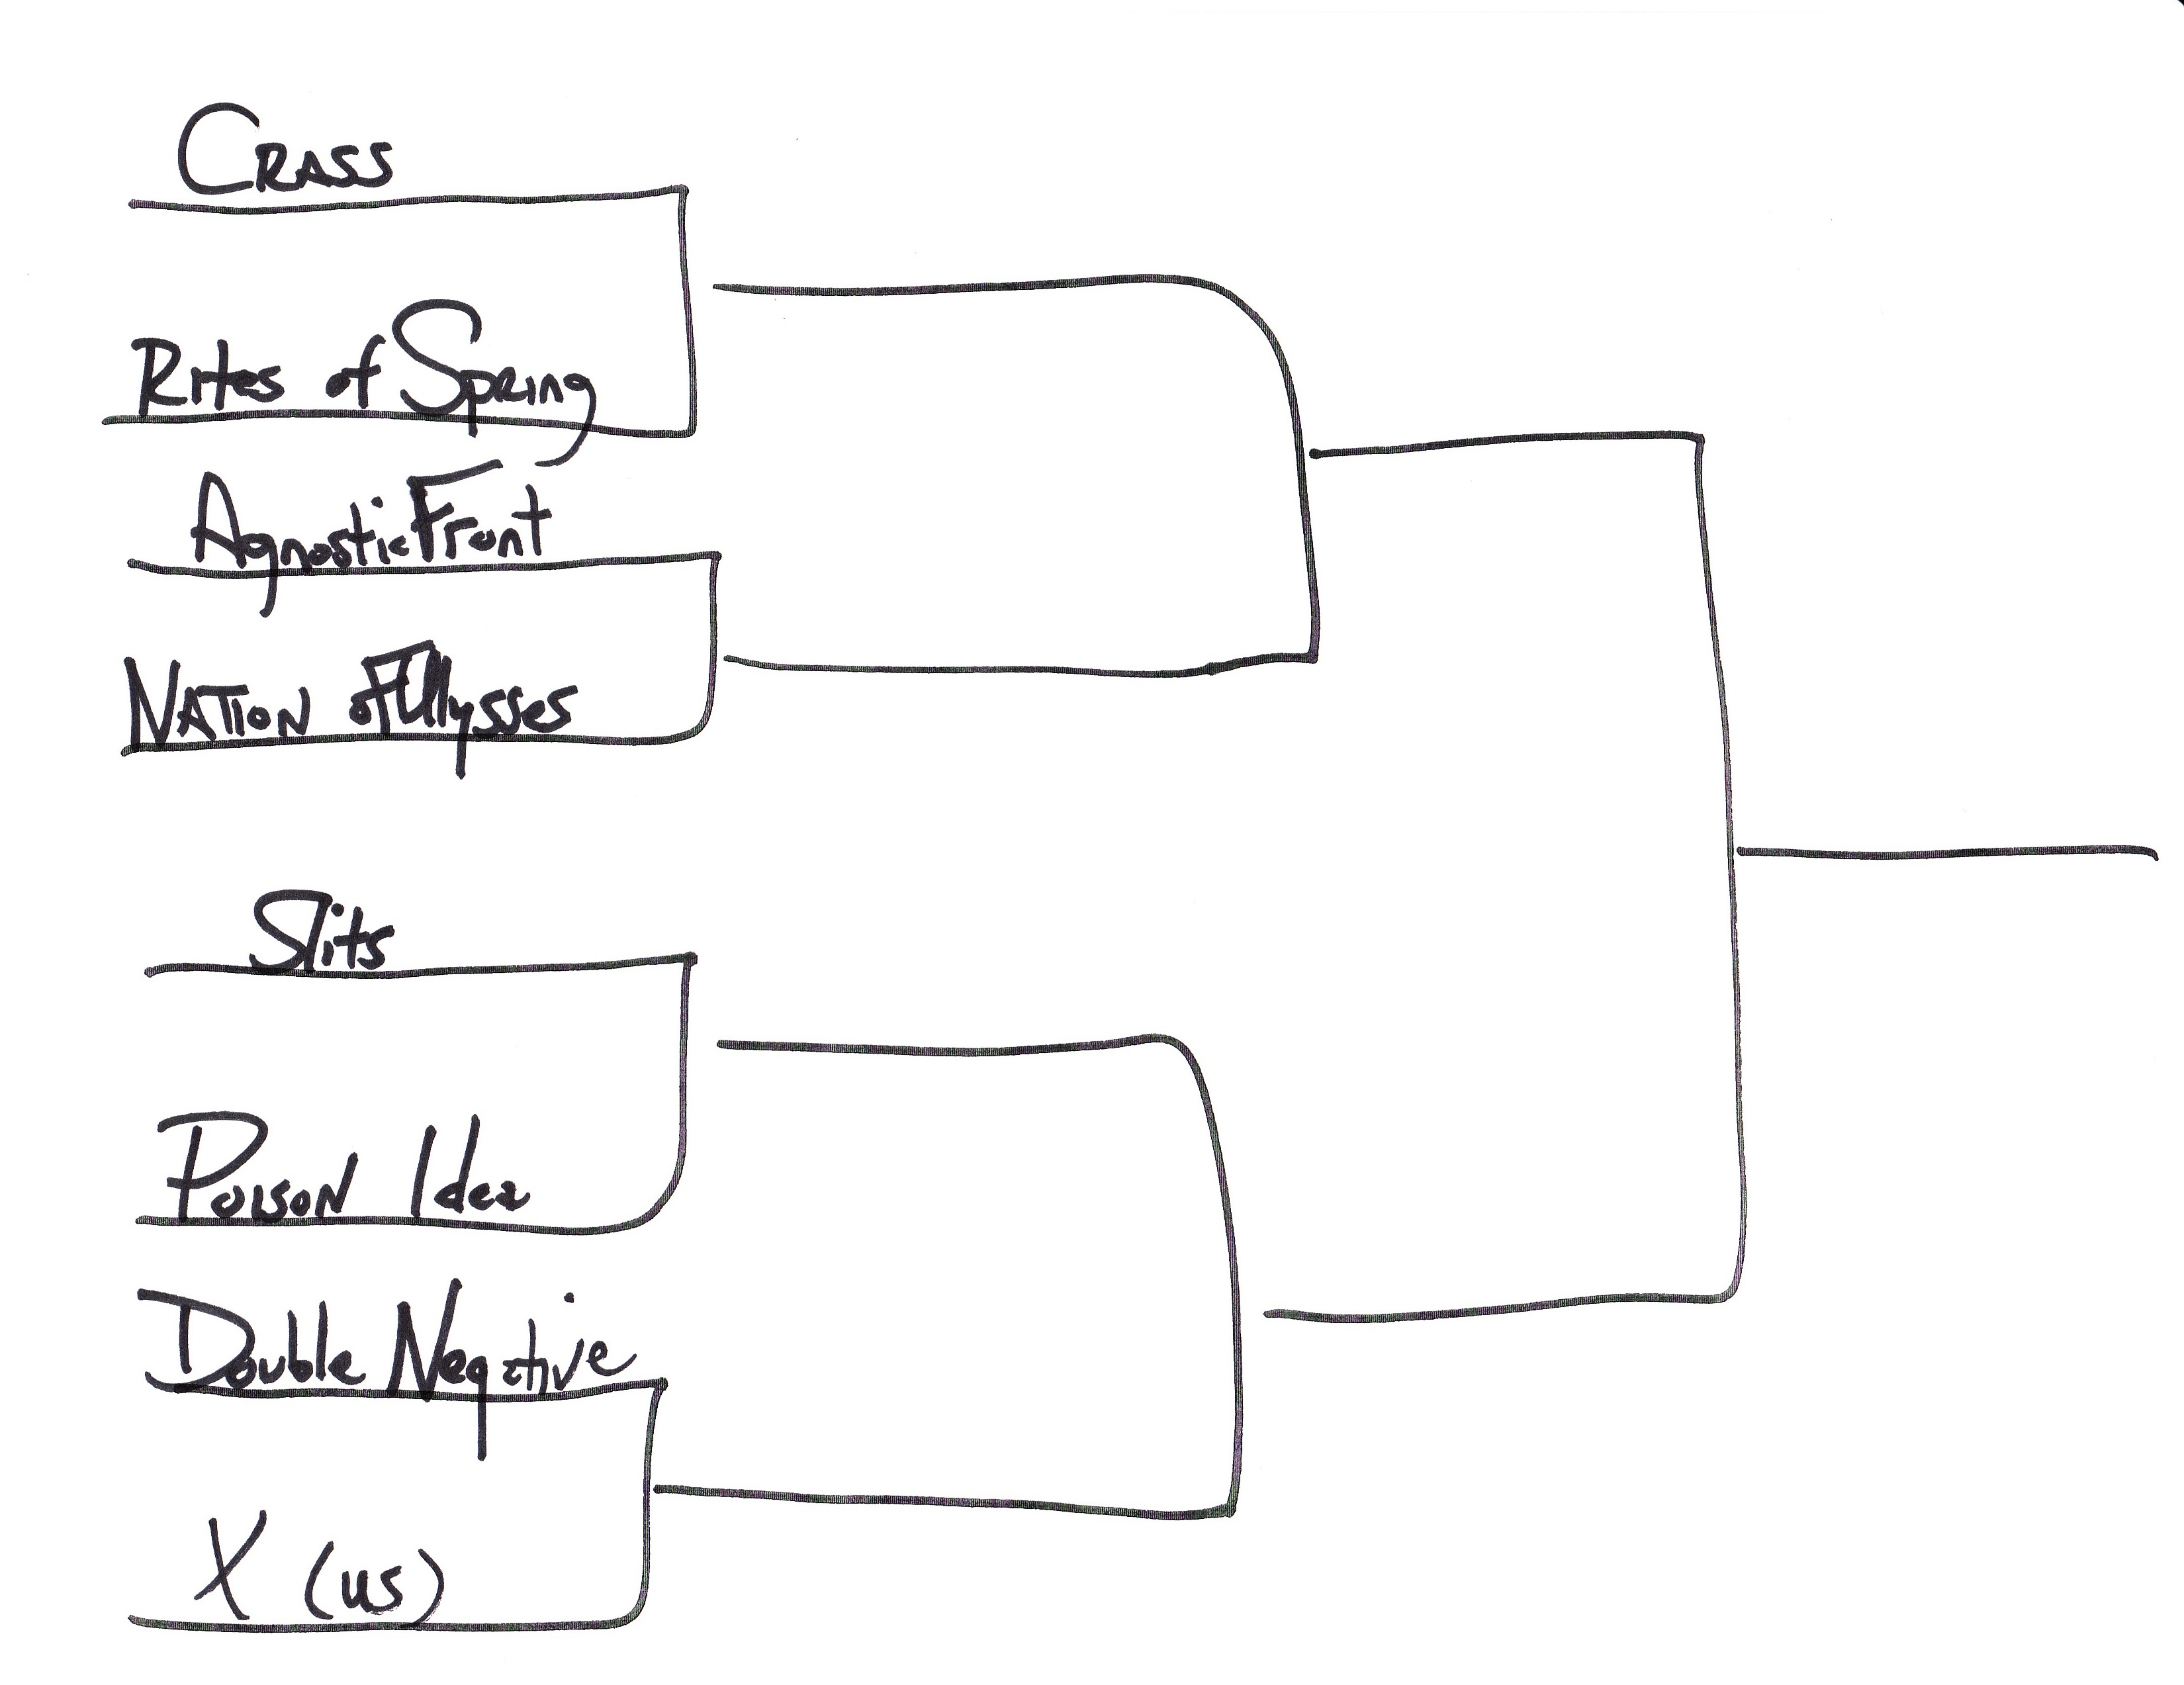 Crass
Rites of Spring
Agnostic Front
Nation of Ulysses
Slits
Poison Idea
Double Negative
X (us)